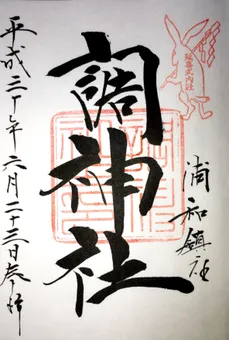 浦和鎮社
調神社
平成三十年六月二十三日奉拝
延喜式内社